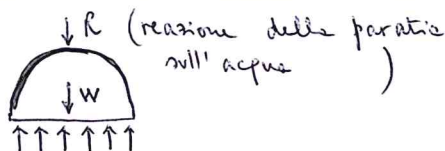 R (reazione della paratia
sull'acqua )
W